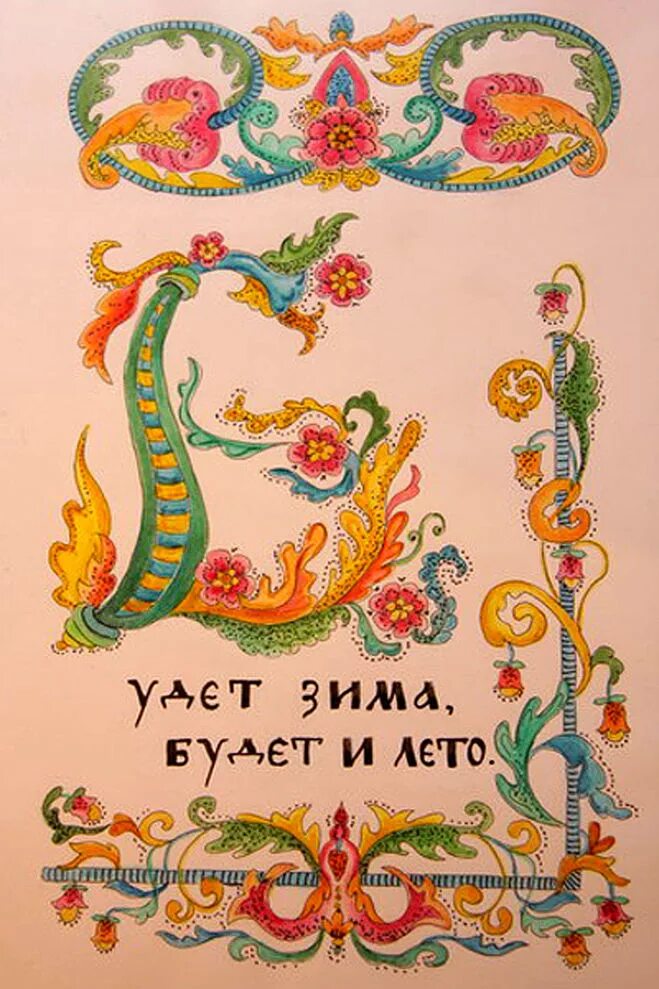 БУДЕТ ЗИМА,
БУДЕТ И ЛЕТО.